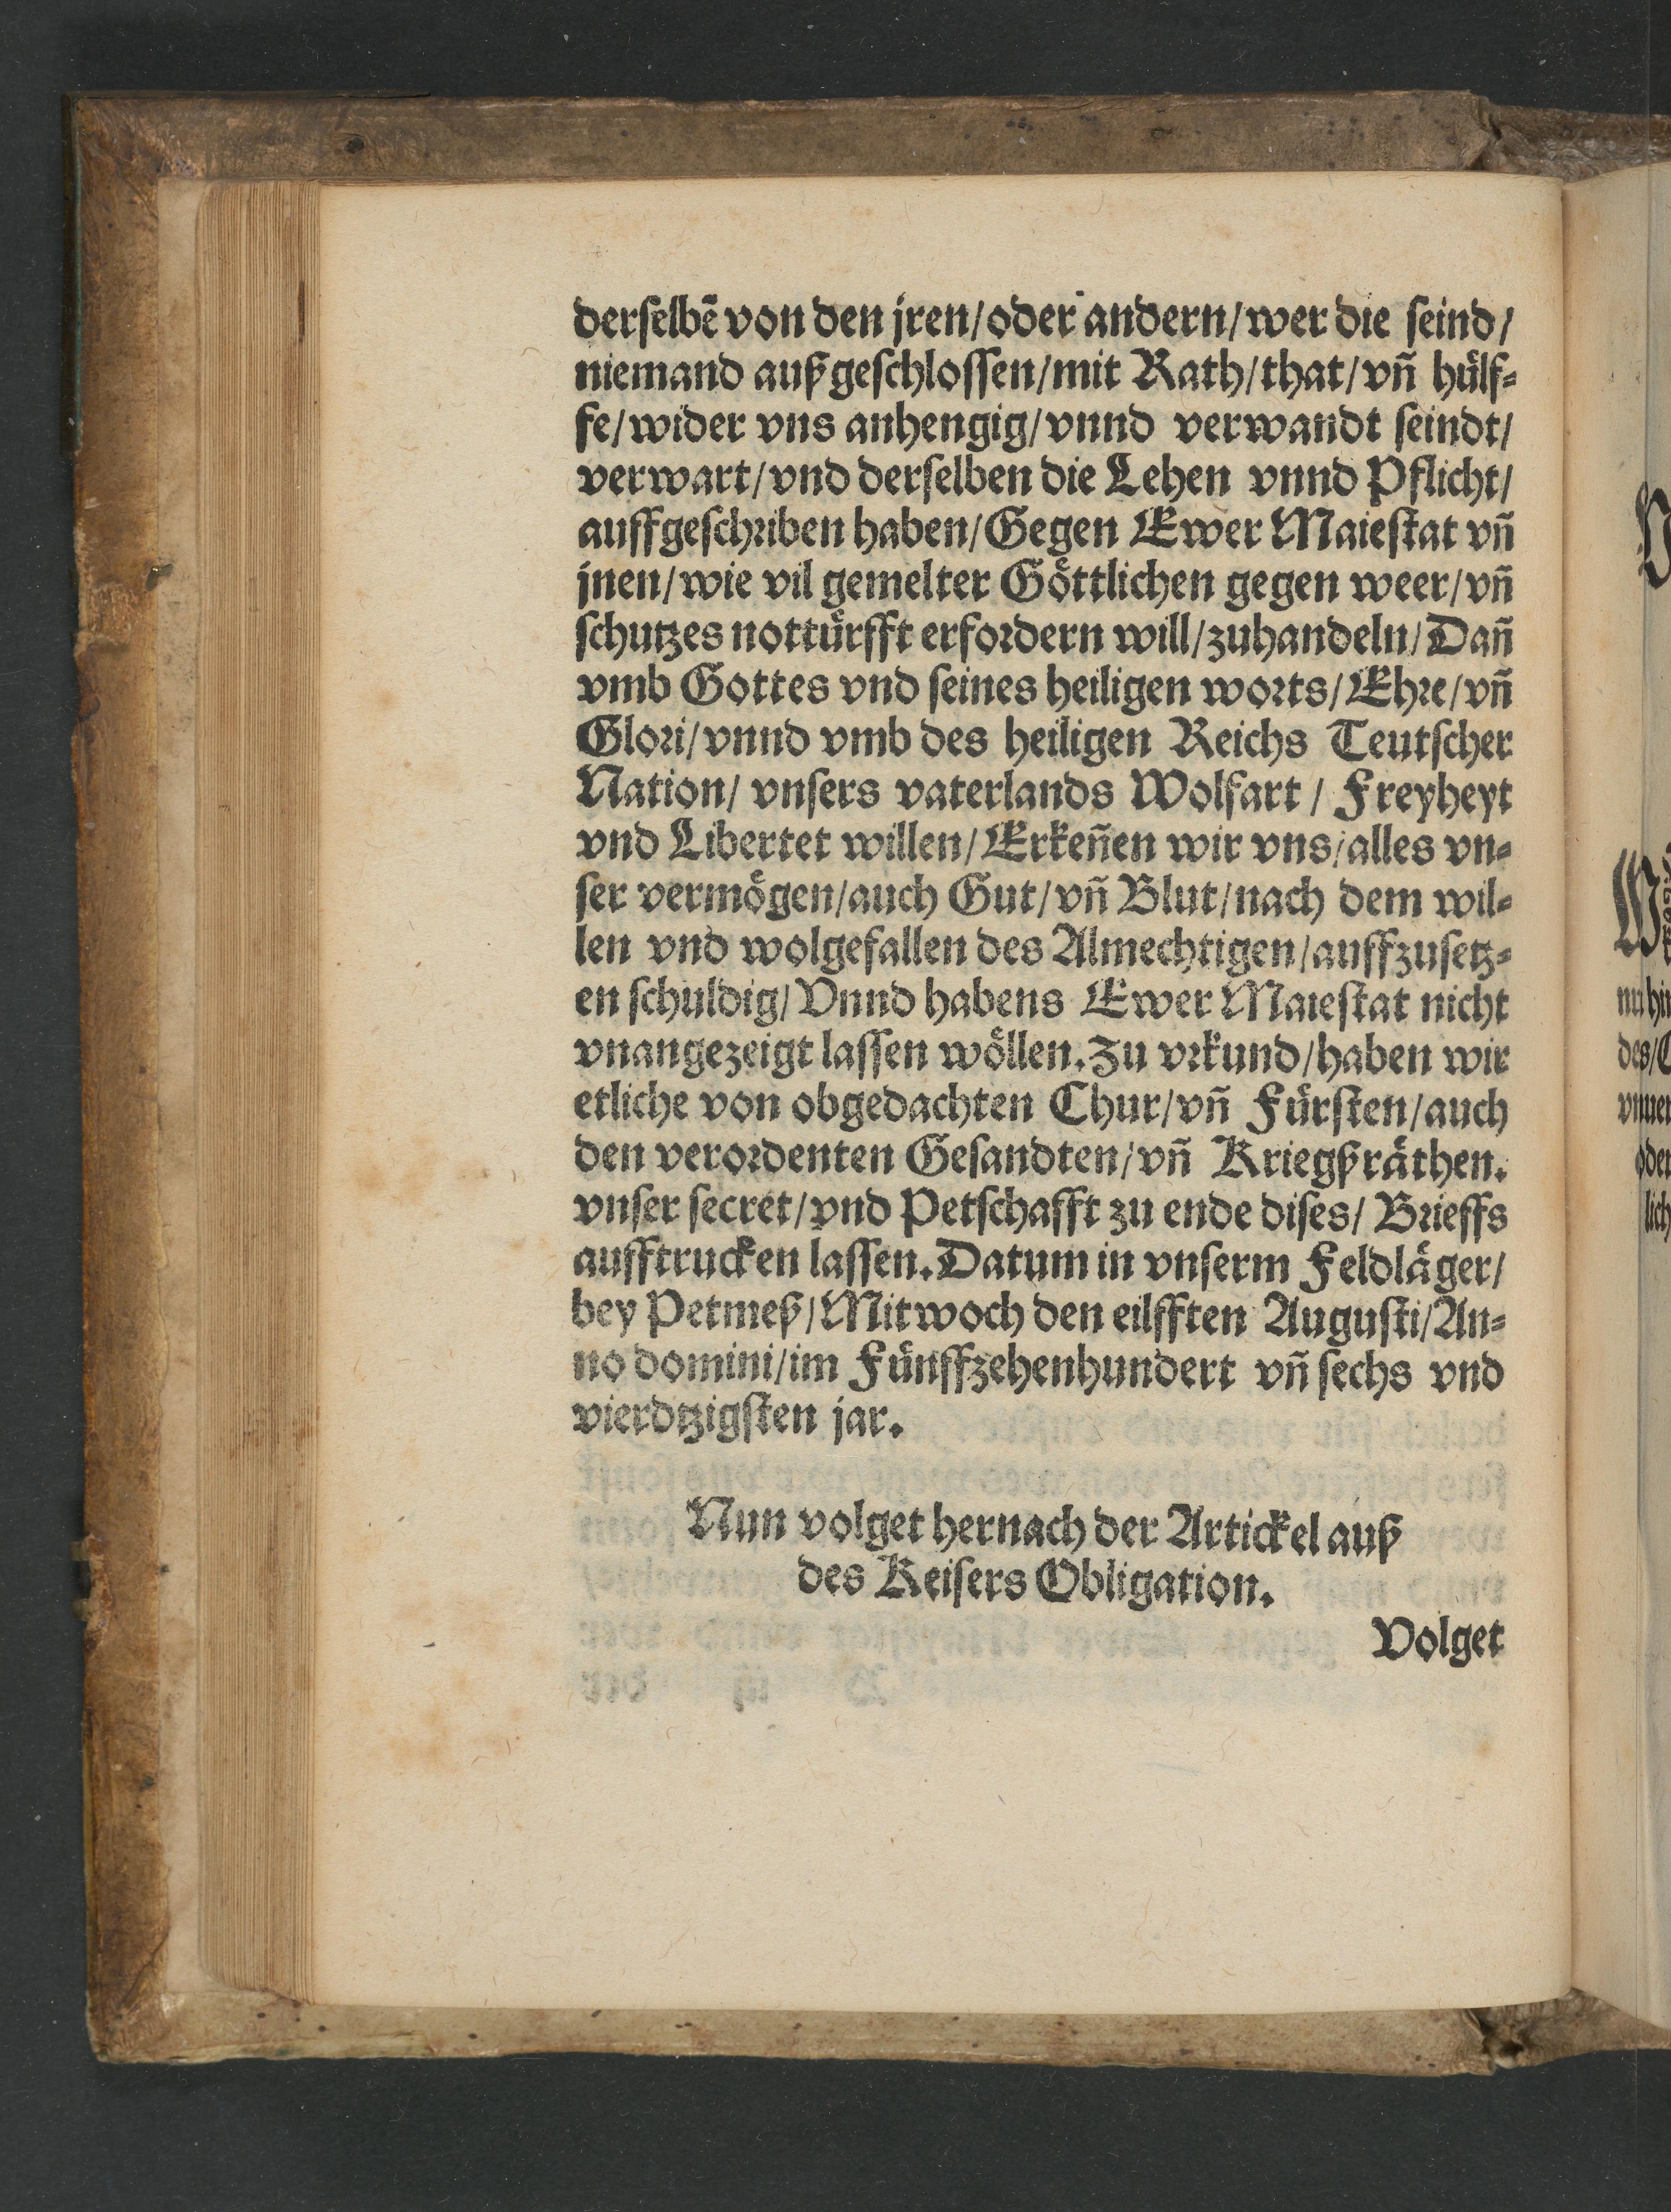 derselbē von den jren/oder andern/wer die seind/
niemand außgeschlossen/mit Rath/that/vñ hülf⸗
fe/wider vns anhengig/vnnd verwandt seindt/
verwart/vnd derselben die Lehen vnnd Pflicht/
auffgeschriben haben/Gegen Ewer Maiestat vñ
jnen/wie vil gemelter Göttlichen gegen weer/vñ
schutzes nottürfft erfordern will/zuhandeln/Dañ
vmb Gottes vnd seines heiligen worts/Ehre/vñ
Glori/vnnd vmb des heiligen Reichs Teutscher
Nation/ vnsers vaterlands Wolfart / Freyheyt
vnd Libertet willen/Erkeñen wir vns/alles vn⸗
ser vermögen/auch Gut/vñ Blut/nach dem wil⸗
len vnd wolgefallen des Almechtigen/auffzusetz⸗
en schuldig/Vnnd habens Ewer Maiestat nicht
vnangezeigt lassen wöllen. Zu vrkund/haben wir
etliche von obgedachten Chur/vñ Fürsten/auch
den verordenten Gesandten/vñ Kriegßräthen.
vnser secret/vnd Petschafft zu ende dises/ Brieffs
aufftrucken lassen. Datum in vnserm Feldläger/
bey Petmeß/Mitwoch den eilfften Augusti/An⸗
no domini/im Fünffzehenhundert vñ sechs vnd
vierdtzigsten jar.
Nun volget hernach der Artickel auß
des Keisers Obligation.
Volget